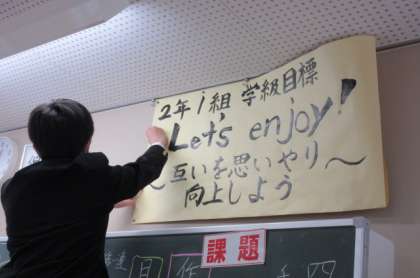 2年1組 学級目標
Let's enjoy!
〜互いを思いやり
向上しよう〜
課題